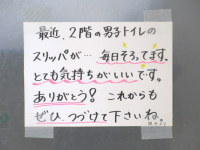 最近、2階の男子トイレの
スリッパが… 毎日そろってます。
とても気持ちがいいです。
ありがとう! これからも
ぜひ つづけて下さいね。